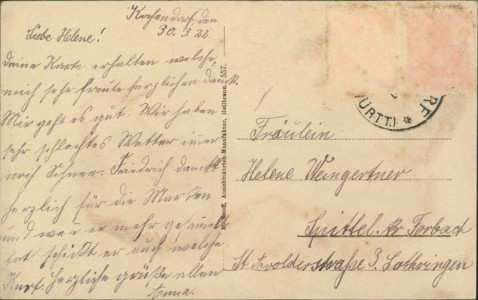 Kochendorf, den
30.3.22
Liebe Helene!
Deine Karte erhalten welche
mich sehr freute herzlichen dank.
Mir geht es gut. Wir haben
sehr schlechtes Wetter immer
noch Schnee. Friedrich dankt
herzlich für die Marken
und wan er mehr gesammelt
hat schickt er auch welche
herzliche grüße allen
Anna.
Ansichtskarten-Manufaktur, Heilbronn. 557.
RF
(WÜRTT.) *
Fräulein
Helene Weingertner
Spittel. Kr Forbach
St Avolderstraße 3. Lothringen